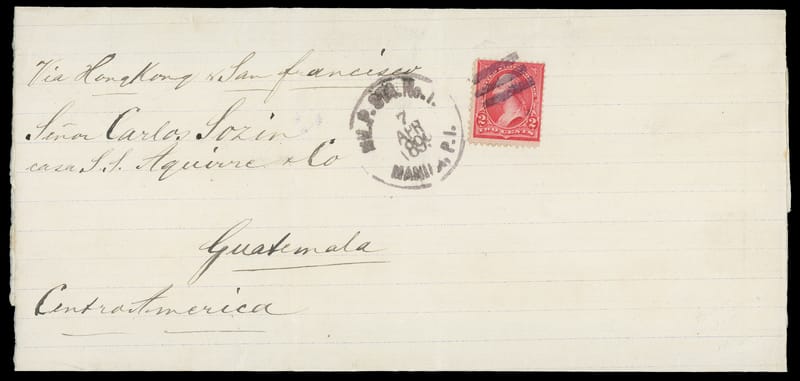 Via HongKong & San francisco
Señor Carlos Sozin
casa S.S. Aguirre & Co
Guatemala
CentroAmerica
STA. No. 1.
7
APR
MANILA, P.I.
2 2
TWO CENTS